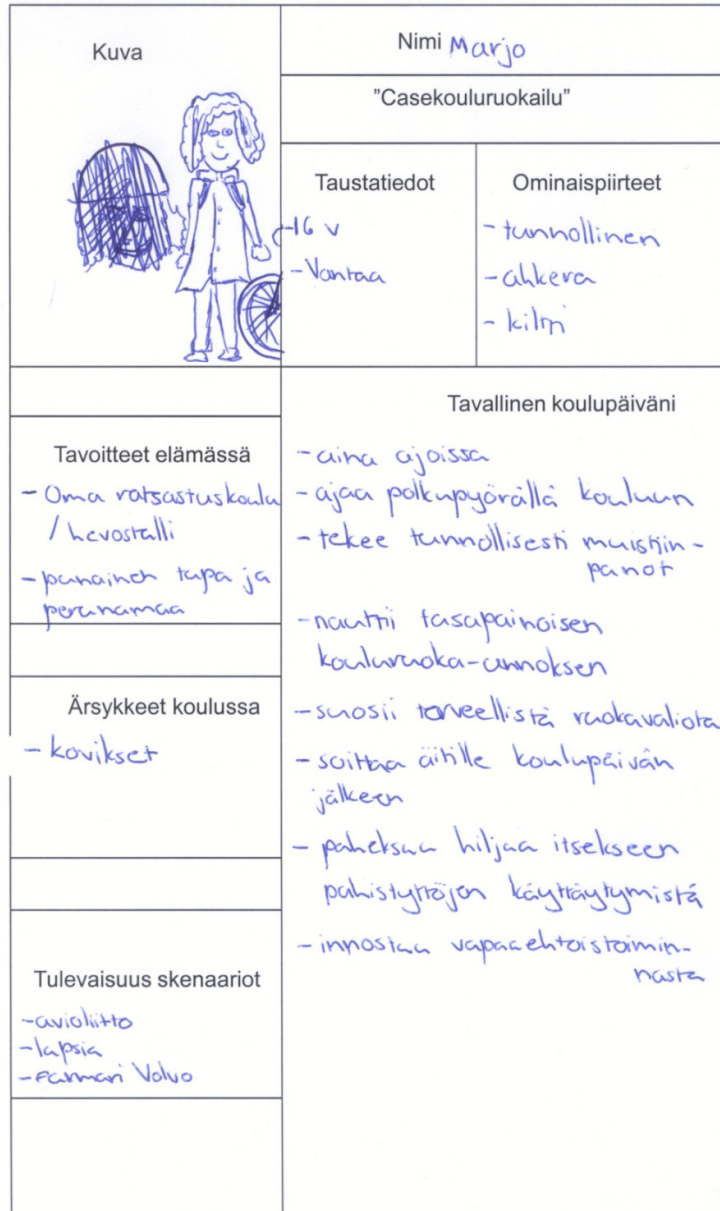 Kuva
Nimi Marjo
"Casekouluruokailu"
Taustatiedot
-16 v
-Vantaa
Ominaispiirteet
- tunnollinen
- ahkera
- kiltti
Tavoitteet elämässä
- Oma ratsastuskoulu
/ hevostalli
- punainen tupa ja
perunamaa
Ärsykkeet koulussa
- kovikset
Tulevaisuus skenaariot
- avioliitto
- lapsia
- Farmari Volvo
Tavallinen koulupäiväni
- aina ajoissa
- ajaa polkupyörällä kouluun
- tekee tunnollisesti muistiin-
panot
- nauttii tasapainoisen
kouluruoka-annoksen
- suosii terveellistä ruokavaliota
- soittaa äitille koulupäivän
jälkeen
- paheksuu hiljaa itsekseen
pahistyttöjen käyttäytymistä
- innostuu vapaaehtoistoimin-
nasta